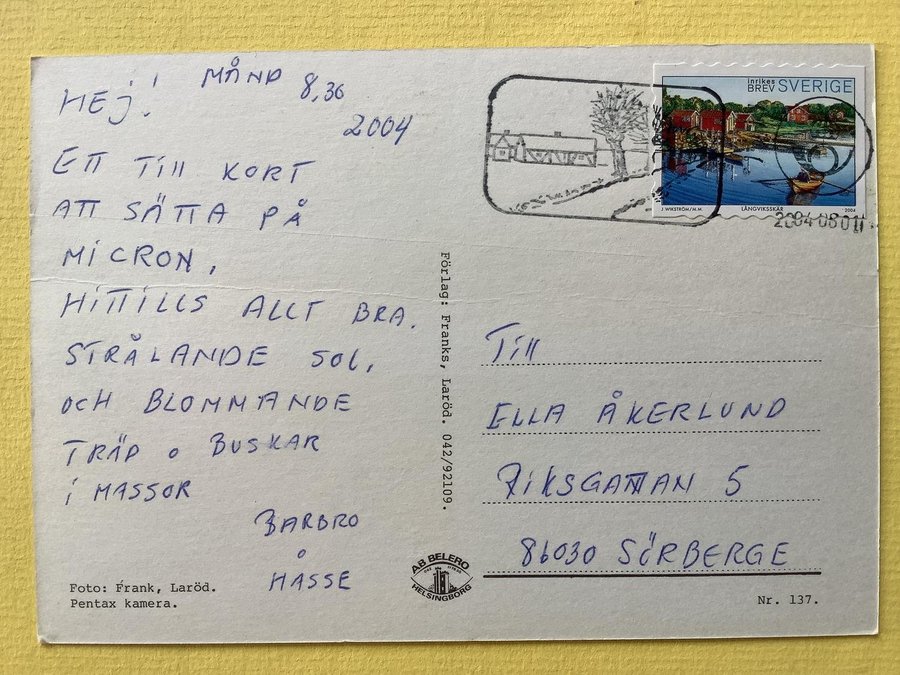 Hej! MÅND 8,30
2004
ETT TILL KORT
ATT SÄTTA PÅ
MICRON,
HITTILLS ALLT BRA.
STRÅLANDE SOL,
OCH BLOMMANDE
TRÄD o BUSKAR
i MASSOR
BARBRO
Å
HASSE
Foto: Frank, Laröd.
Pentax kamera.
Förlag: Franks, Laröd. 042/92109.
AB BELERO
HELSINGBORG
inrikes
BREV SVERIGE
J. WIKSTRÖM/M.M. LÅNGVIKSSKÄR 2004
Till
ELLA ÅKERLUND
RIKSGATAN 5
86030 SÖRBERGE
Nr. 137.